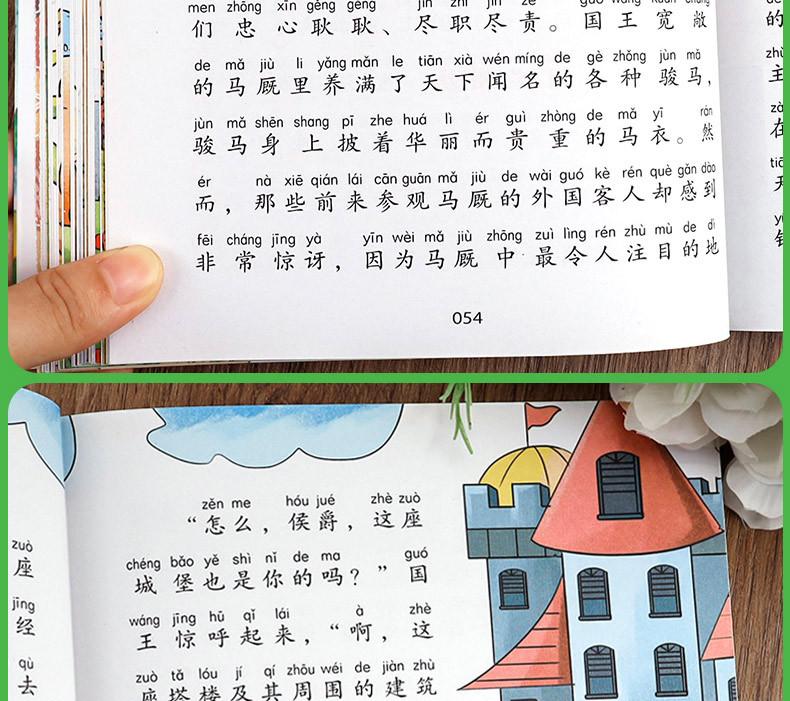 men zhōng xīn gěng gěng jìn zhí jìn zé
们忠心耿耿、尽职尽责。国王宽敞
de mǎ jiù li yǎng mǎn le tiān xià wén míng de gè zhǒng jùn mǎ
的马厩里养满了天下闻名的各种骏马，
jùn mǎ shēn shang pī zhe huá lì ér guì zhòng de mǎ yī rán
骏马身上披着华丽而贵重的马衣。然
ér nà xiē qián lái cān guān mǎ jiù de wài guó kè rén què gǎn dào
而，那些前来参观马厩的外国客人却感到
fēi cháng jīng yà yīn wèi mǎ jiù zhōng zuì lìng rén zhù mù de dì
非常惊讶，因为马厩中最令人注目的地
054
的
主
zài
在
天
zuò
座
jīng
经
qù
去
zěn me hóu jué zhè zuò
“怎么，侯爵，这座
chéng bǎo yě shì nǐ de ma guó
城堡也是你的吗？”国
wáng jīng hū qǐ lái à zhè
王惊呼起来，“啊，这
zuò tǎ lóu jí qí zhōu wéi de jiàn zhù
座塔楼及其周围的建筑